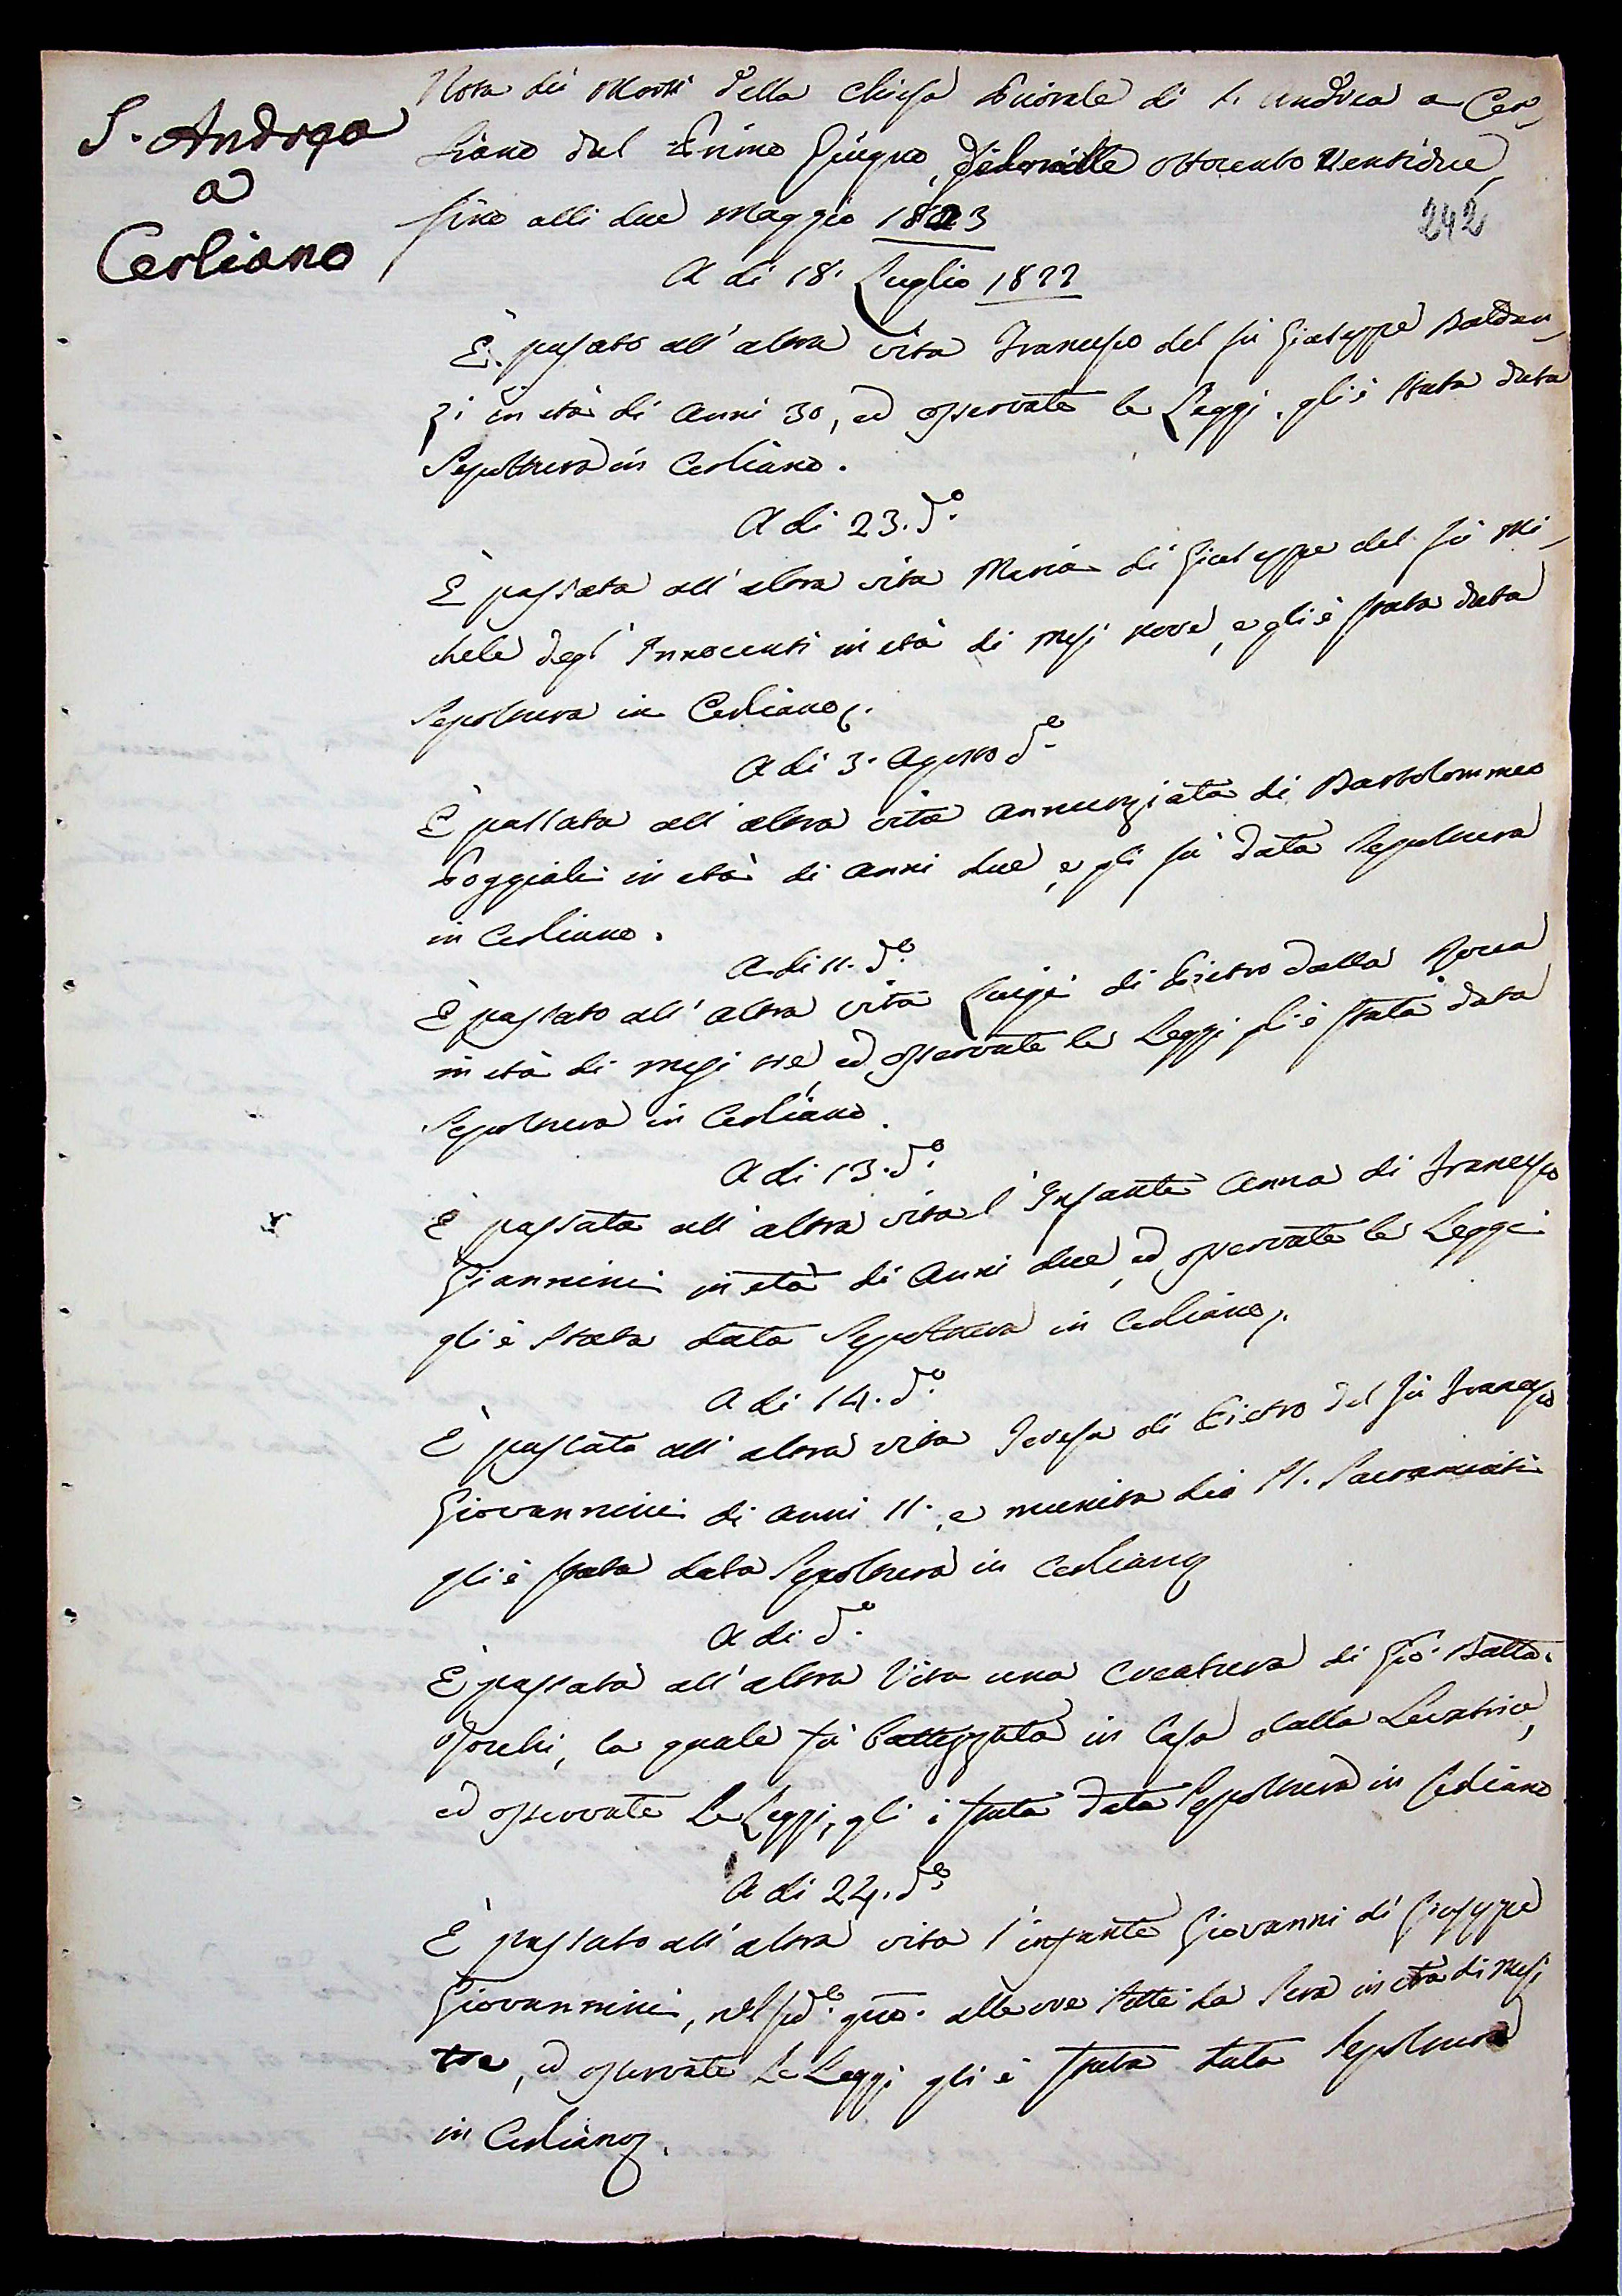 S. Andrea
a
Cerliano
Nota dei Morti della Chiesa Priorale di S. Andrea a Cer-
liano dal Primo Giugno, ottocento Ventidue,
fino alli due Maggio 1823
242
A di 18. Luglio 1822
È passato all'altra vita Francesco del fù Giuseppe Baldan-
zi in età di Anni 30, ed osservate le Leggi, gli è stata data
Sepoltura in Cerliano.
A di 23. do.
È passata all'altra vita Maria di Giuseppe del fù Mi-
chele degl'Innocenti in età di Mesi nove, e gli è stata data
Sepoltura in Cerliano.
A di 3. Agosto do.
È passata all'altra vita Annunziata di Bartolommeo
Poggiali in età di Anni due, e gli fù data Sepoltura
in Cerliano.
A di 11. do.
È passato all'altra vita Luigi di Pietro dalla
in età di mesi tre, ed osservate le Leggi gli è stata data
Sepoltura in Cerliano.
A di 13. do.
È passata all'altra vita l'Infante Anna di Francesco
Giannini in età di Anni due, ed osservate le Leggi
gli è stata data Sepoltura in Cerliano.
A di 14. do.
È passata all'altra vita Teresa di Pietro del fù Francesco
Giovannini di anni 11. e munita dei SS. Sacramenti
gli è stata data Sepoltura in Cerliano
A di do.
È passata all'altra Vita una Creatura di Gio. Batta.
la quale fù Battezzata in Casa dalla Levatrice,
ed osservate Le Leggi, gli è stata data Sepoltura in Cerliano
A di 24. do.
È passato all'altra vita l'infante Giovanni di Giuseppe
Giovannini, nel sudo. gno. alle ore sette la Sera in età di Mesi
tre, ed osservate Le Leggi gli è stata data Sepoltura
in Cerliano.